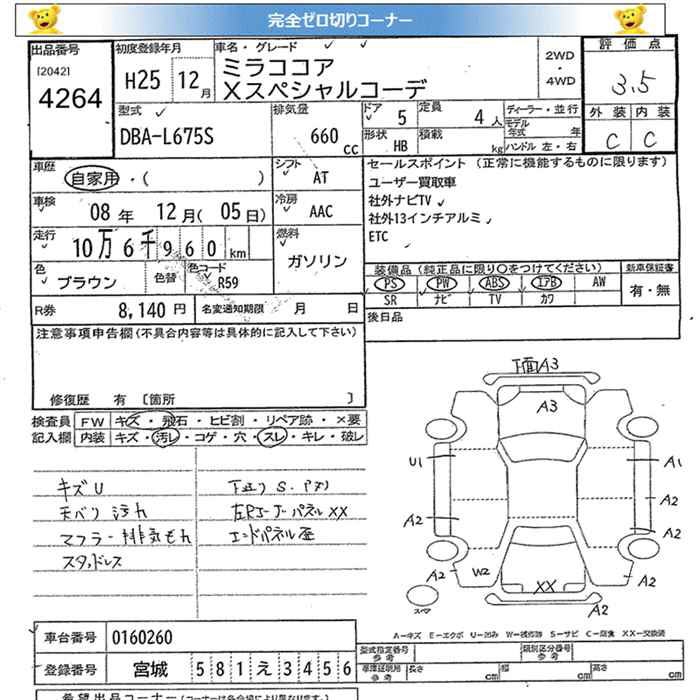 完全ゼロ切りコーナー
出品番号
[2042]
4264
初度登録年月
H25 12月
車名・グレード
ミラココア
Xスペシャルコーデ
2WD
・
4WD
評価点
3.5
外装 内装
C C
型式
DBA-L675S
排気量
660 cc
ドア 5
定員 4人
形状 HB
積載 kg
ディーラー・並行
モデル年式 年
ハンドル 左・右
車歴
自家用・( )
シフト AT
車検
08年 12月(05日)
冷房 AAC
走行
10万6千960km
燃料
ガソリン
色
ブラウン
色替
色コード
R59
R券 8,140円
名変通知期限 月 日
セールスポイント (正常に機能するものに限ります)
ユーザー買取車
社外ナビTV
社外13インチアルミ
ETC
装備品(純正品に限り○をつけてください)
新車保証書
PS PW ABS エアB AW
有・無
SR ナビ TV カワ
後日品
注意事項申告欄(不具合内容等は具体的に記入して下さい)
修復歴 有 [箇所 ]
検査員 FW キズ・飛石・ヒビ割・リペア跡・×要
記入欄 内装 キズ・汚レ・コゲ・穴・スレ・キレ・破レ
キズU
天ベリ汚れ
マフラー排気もれ
スタッドレス
下廻りS.
エンドパネル歪
下面A3
A3
U1
A1
A2
A2
A2
A2
W2
XX
A2
スマ
A-キズ E-エクボ U-凹み W-補修跡 S-サビ C-腐食 XX-交換済
車台番号 0160260
登録番号 宮城 581え3456
型式指定番号
参考
類別区分番号
参考
車庫証明用
参考
長さ cm
幅 cm
高さ cm
希望出品コーナー